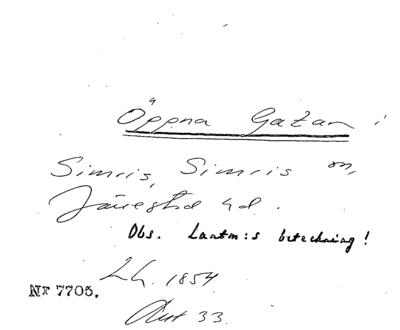 Öppna Gatan i
Simris, Simris sn,
Järrestad hd.
Obs. Lantm:s beteckning!
1854
Nr 7705.
Akt 33.